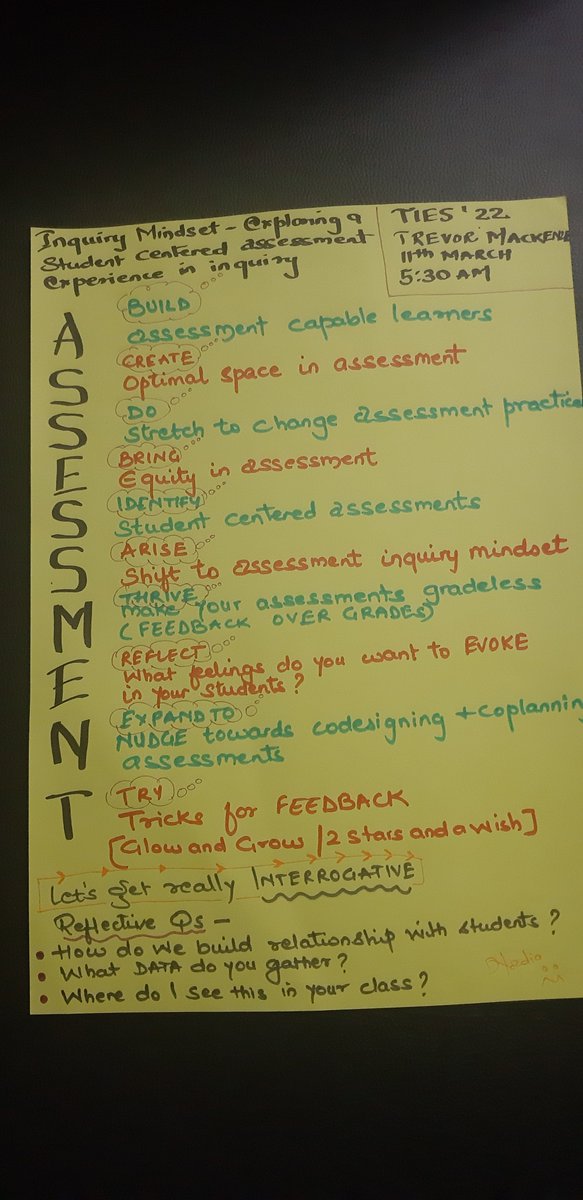 Inquiry Mindset - exploring a
Student centered assessment
experience in inquiry
TIES '22
TREVOR MACKENZIE
11th MARCH
5:30 AM
ASSESSMENT
BUILD
assessment capable learners
CREATE
Optimal space in assessment
DO
Stretch to change assessment practice
BRING
Equity in assessment
IDENTIFY
Student centered assessments
ARISE
Shift to assessment inquiry mindset
THRIVE
make your assessments gradeless
(FEEDBACK OVER GRADES)
REFLECT
What feelings do you want to EVOKE
in your students?
EXPAND TO
NUDGE towards codesigning + coplanning
assessments
TRY
Tricks for FEEDBACK
[Glow and Grow / 2 stars and a wish]
Let's get really INTERROGATIVE
Reflective Qs -
• How do we build relationship with students?
• What DATA do you gather?
• Where do I see this in your class?